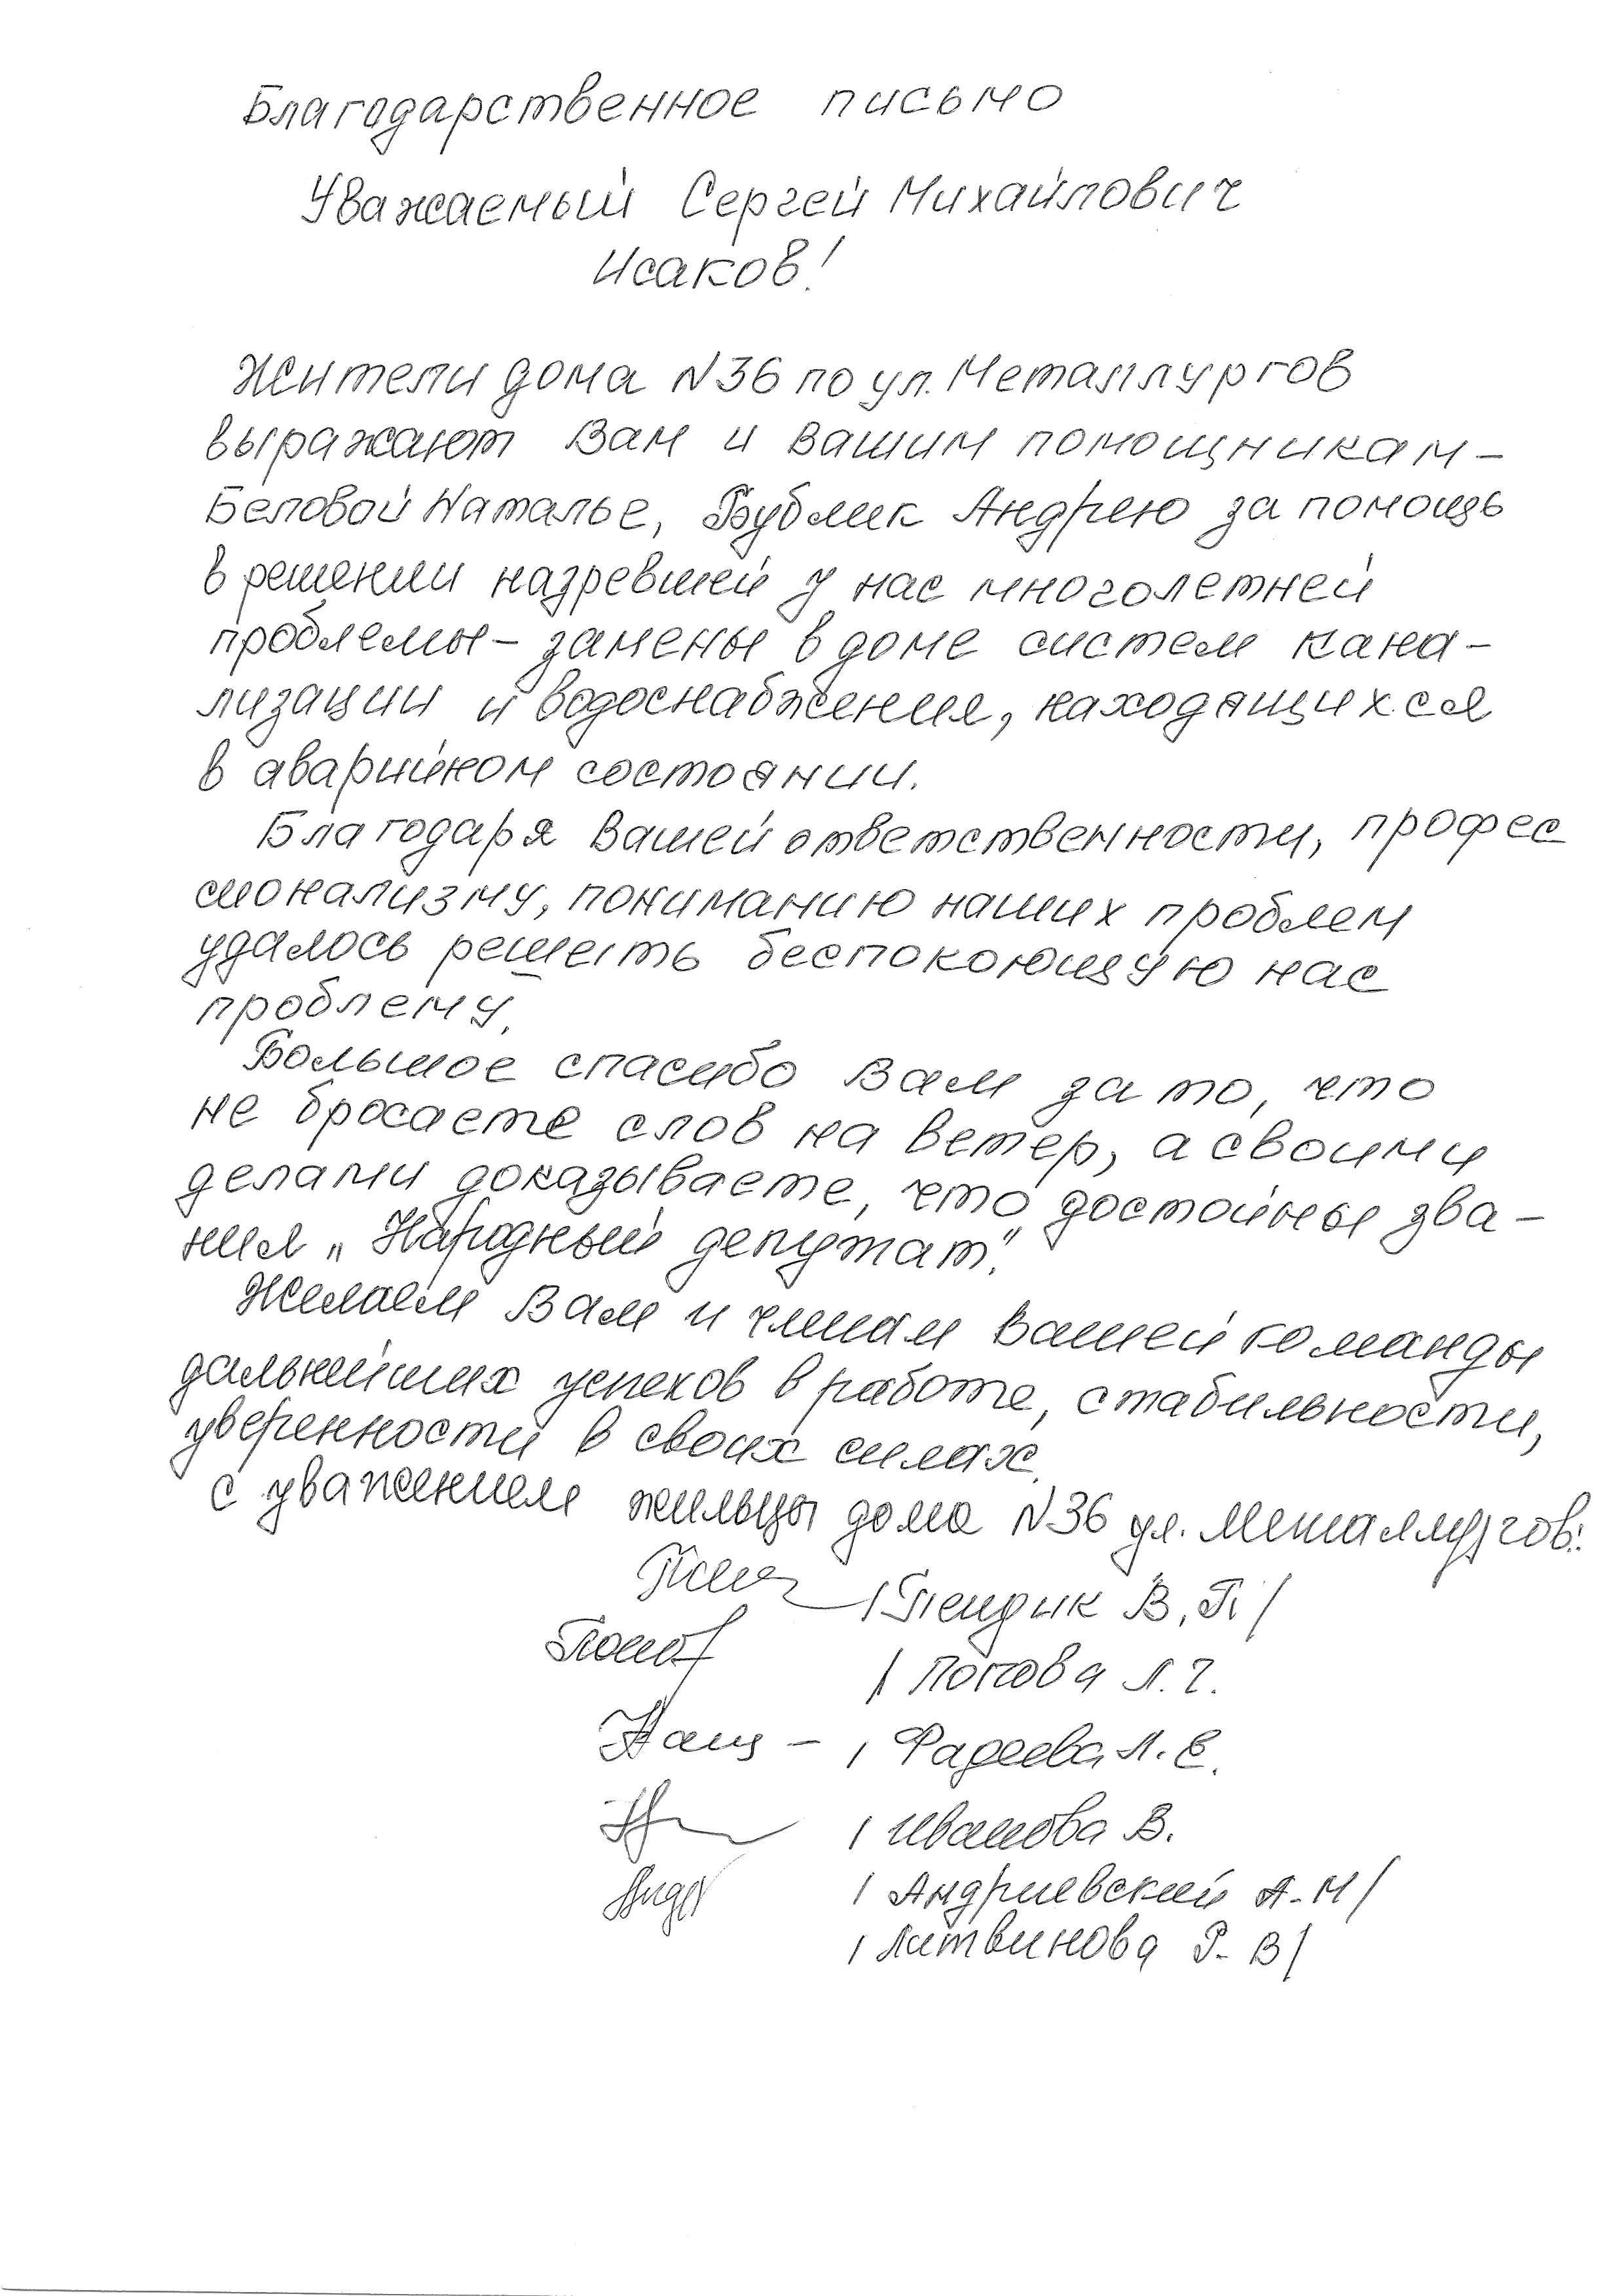 Благодарственное письмо
Уважаемый Сергей Михайлович
Исаков!
Жители дома N36 по ул. Металлургов
выражают Вам и Вашим помощникам –
Беловой Наталье, Бублик Андрею за помощь
в решении назревшей у нас многолетней
проблемы – замены в доме систем кана–
лизации и водоснабжения, находящихся
в аварийном состоянии.
Благодаря Вашей ответственности, профес
сионализму, пониманию наших проблем
удалось решить беспокоющую нас
проблему.
Большое спасибо Вам за то, что
не бросаете слов на ветер, а своими
делами доказываете, что достойны зва–
ния „Народный депутат".
Желаем Вам и членам Вашей команды
дальнейших успехов в работе, стабильности,
уверенности в своих силах.
с уважением жильцы дома N36 ул. Металлургов:
В.П/
/ Попова Л. Г.
/ Фадеева Л. Е.
/ Иванова В.
/ Андриевский А-М/
/ Литвинова Р-В/